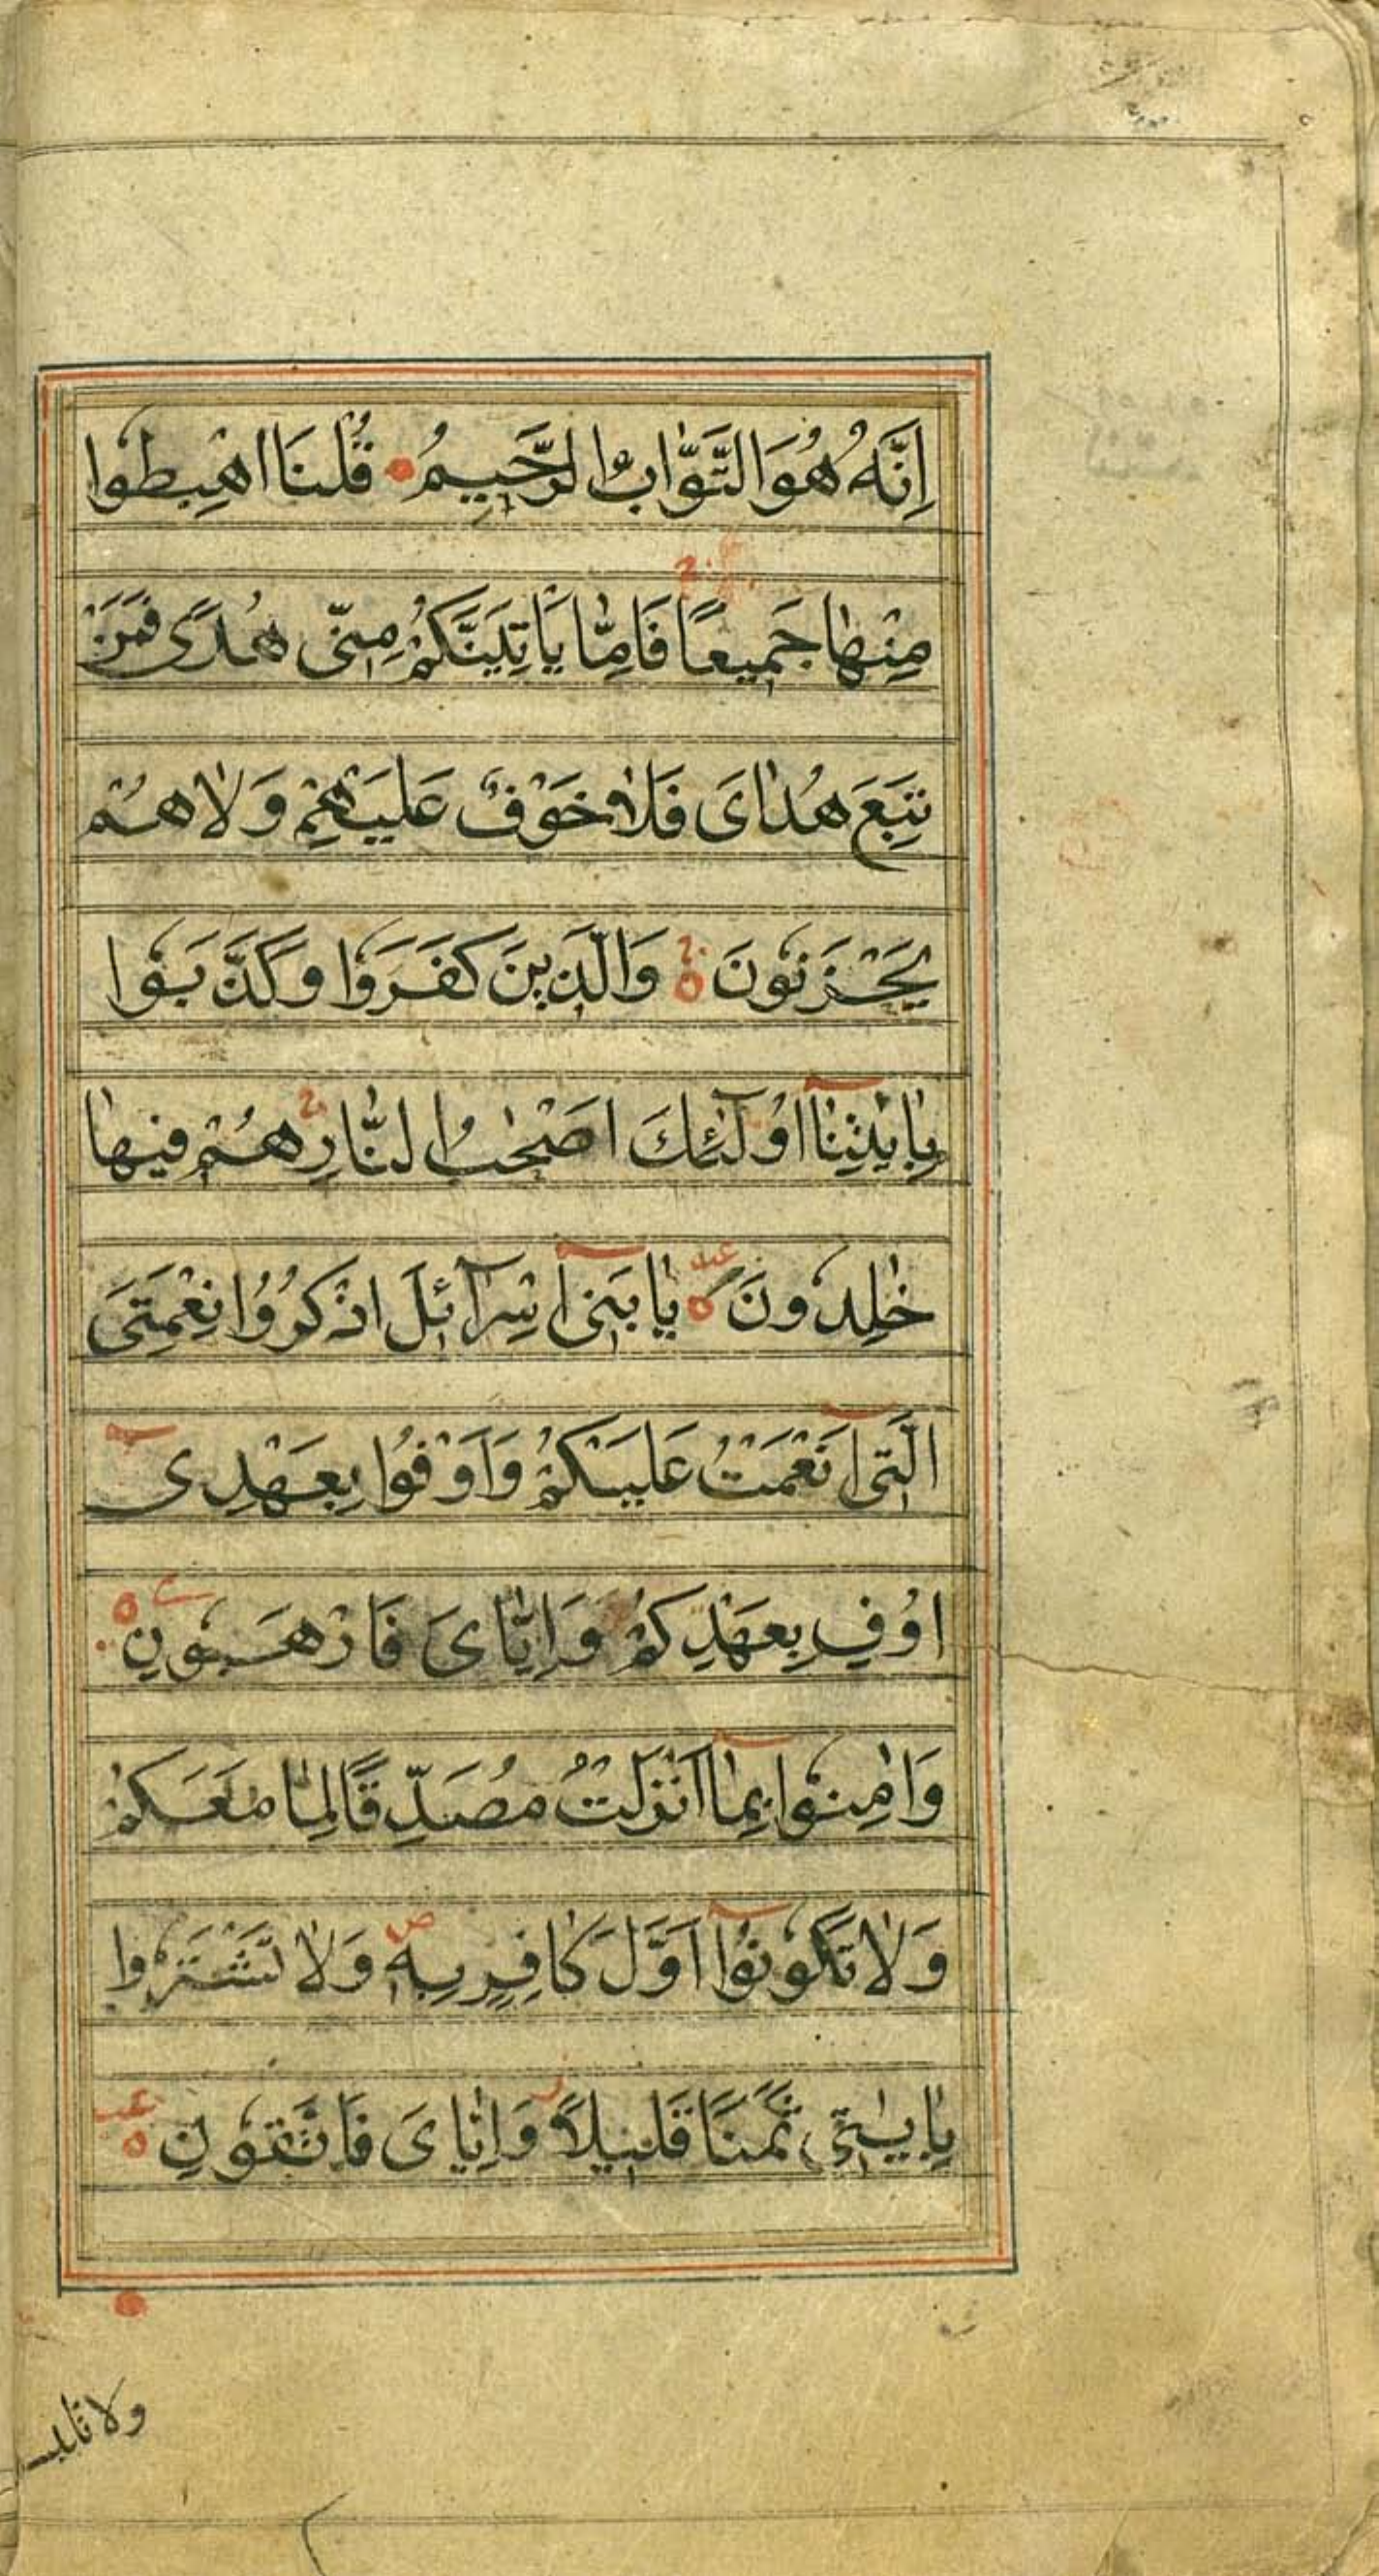 اِنَّهُ هُوَ التَّوَّابُ الرَّحِيمُ قُلْنَا اهْبِطُوا
مِنْهَا جَمِيعًا فَاِمَّا يَاْتِيَنَّكُمْ مِنّى هُدًى فَمَنْ
تَبِعَ هُدَاىَ فَلَا خَوْفٌ عَلَيْهِمْ وَلَا هُمْ
يَحْزَنُونَ وَالَّذِينَ كَفَرَوُا وَكَذَّبَوُا
بِاٰيٰتِنَآ اُولٰٓئِكَ اَصْحٰبُ النَّارِ هُمْ فِيهَا
خٰلِدُونَ يَا بَنِىٓ اِسْرَآئِلَ اذْكُرُوا نِعْمَتِىَ
الَّتِىٓ اَنْعَمْتُ عَلَيْكُمْ وَاَوْفُوا بِعَهْدِىٓ
اُوْفِ بِعَهْدِكُمْ وَاِيَّاىَ فَارْهَبُونِ
وَاٰمِنُوا بِمَآ اَنْزَلْتُ مُصَدِّقًا لِمَا مَعَكُمْ
وَلَا تَكُونُوٓا اَوَّلَ كَافِرٍ بِهٖ ص وَلَا تَشْتَرُوا
بِاٰيٰتِى ثَمَنًا قَلِيلًا وَاِيَّاىَ فَاتَّقُونِ
ولا تلبسـ